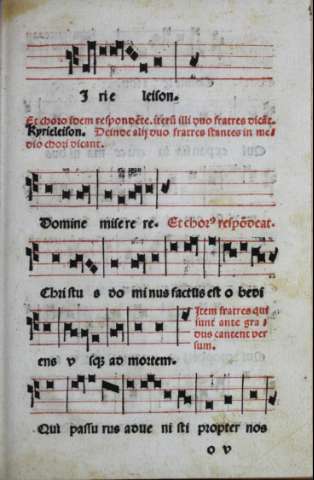 J rie leison.
Et choro idem respondẽte. iterũ illi duo fratres dicãt.
Kyrieleison. Deinde alij duo fratres stantes in me⸗
dio chori dicant.
Domine misere re. Et chorꝰ respõdeat.
Chri stu s do mi nus factus est o bedi
Item fratres qui
sunt ante gra⸗
dus cantent ver
sum.
ens v sqꝫ ad mortem.
Qui passu rus adue ni sti propter nos
o v